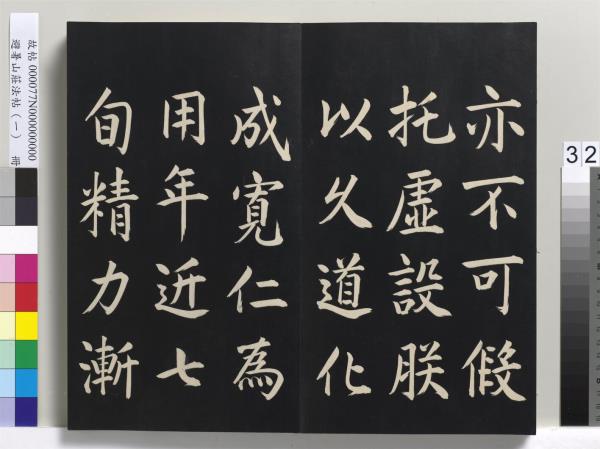 亦不可假
托虛設朕
以久道化
成寬仁為
用年近七
旬精力漸
故帖 000077N000000000
避暑山莊法帖（一） 冊
32